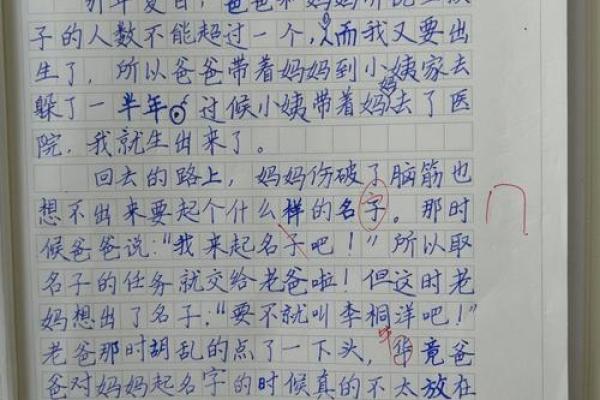 那年夏日，爸爸和妈妈听说生
子的人数不能超过一个，而我又要出
生了，所以爸爸带着妈妈到小姨家去
躲了一半年。过候小姨带着妈妈去了医
院，我就生出来了。
回去的路上，妈妈伤破了脑筋也
想不出来要起个什么样的名子。那时
候爸爸说：“我来起名子吧！”所以取
名子的任务就交给老爸啦！但这时老
妈想出了名子：“要不就叫李桐洋吧！”
老爸那时胡乱的点了一下头，华竟爸
爸对妈妈起名字的时候真的不太放在